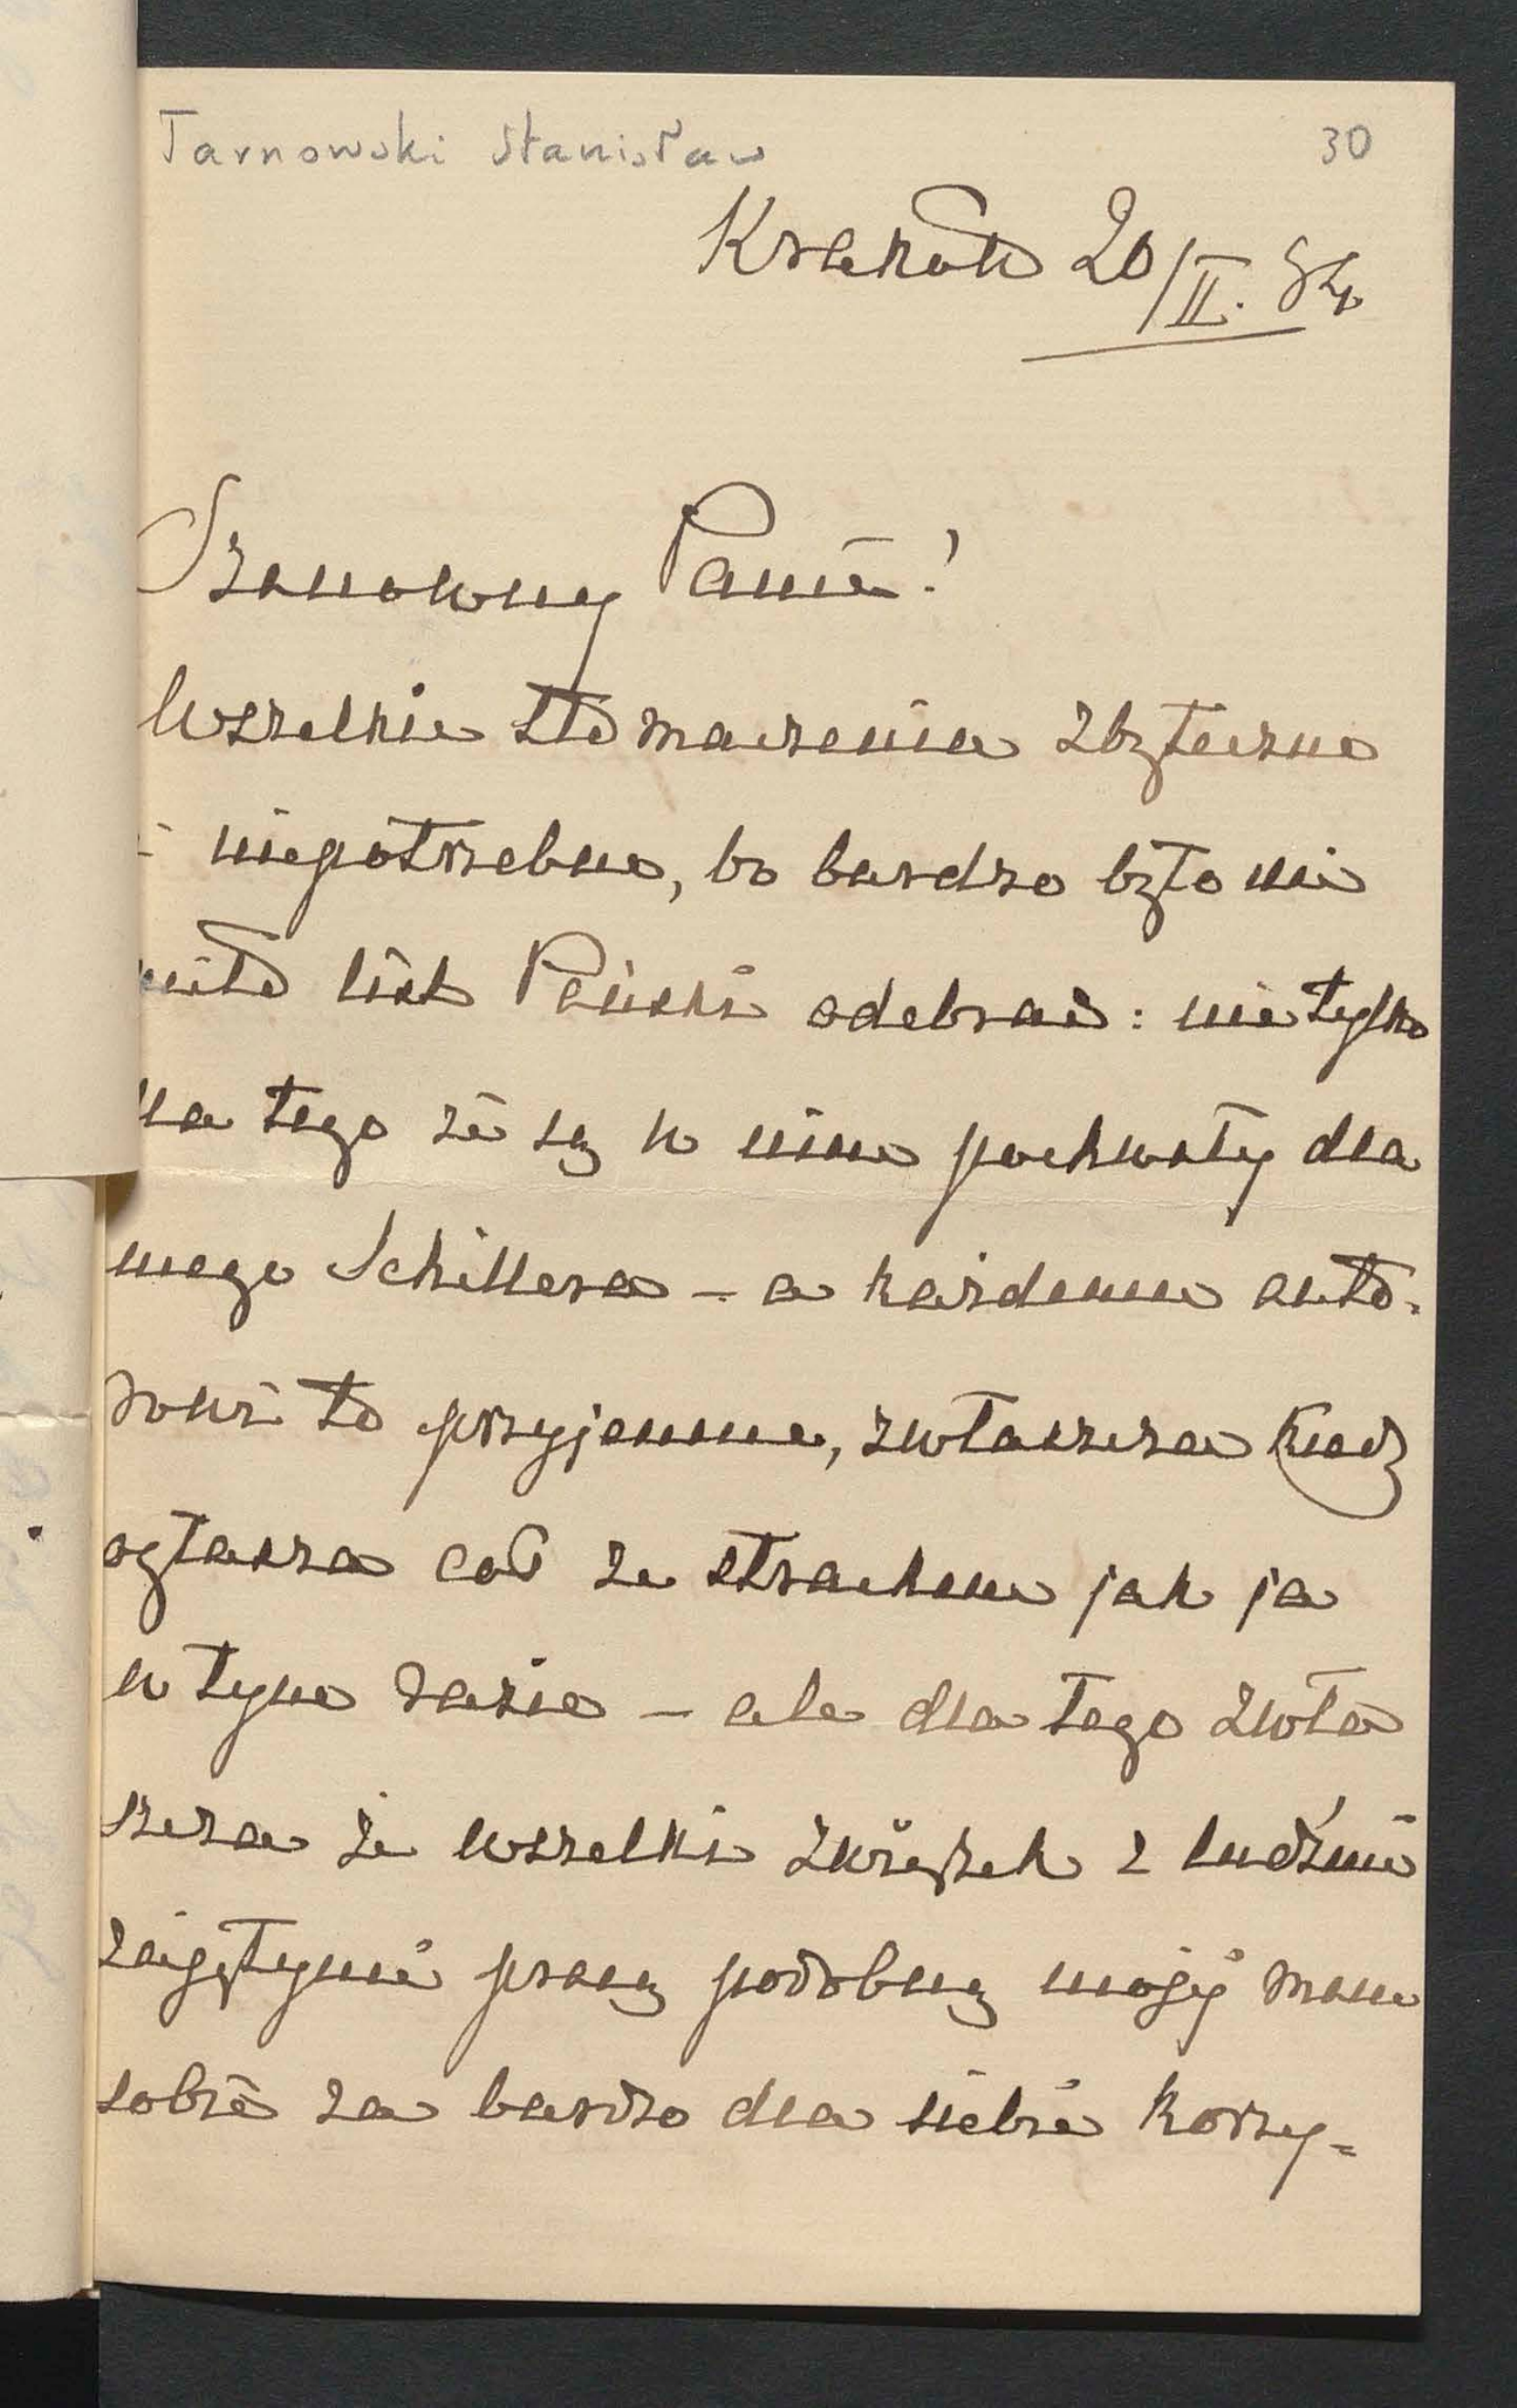 Tarnowski Stanisław 30
Kraków 20/II. 84
Szanowny Panie!
Wszelkie tłómaczenie zbyteczne
i niepotrzebne, bo bardzo było mi
miło list Pański odebrać: nie tylko
dla tego że są w nim pochwały dla
mego Schillera – a każdemu auto-
rowi to przyjemne, zwłaszcza kiedy
ogłasza coś ze strachem jak ja
w tym razie – ale dla tego zwła
szcza że wszelki związek z ludźmi
zajętymi pracą podobną mojéj mam
sobie za bardzo dla siebie korzy=